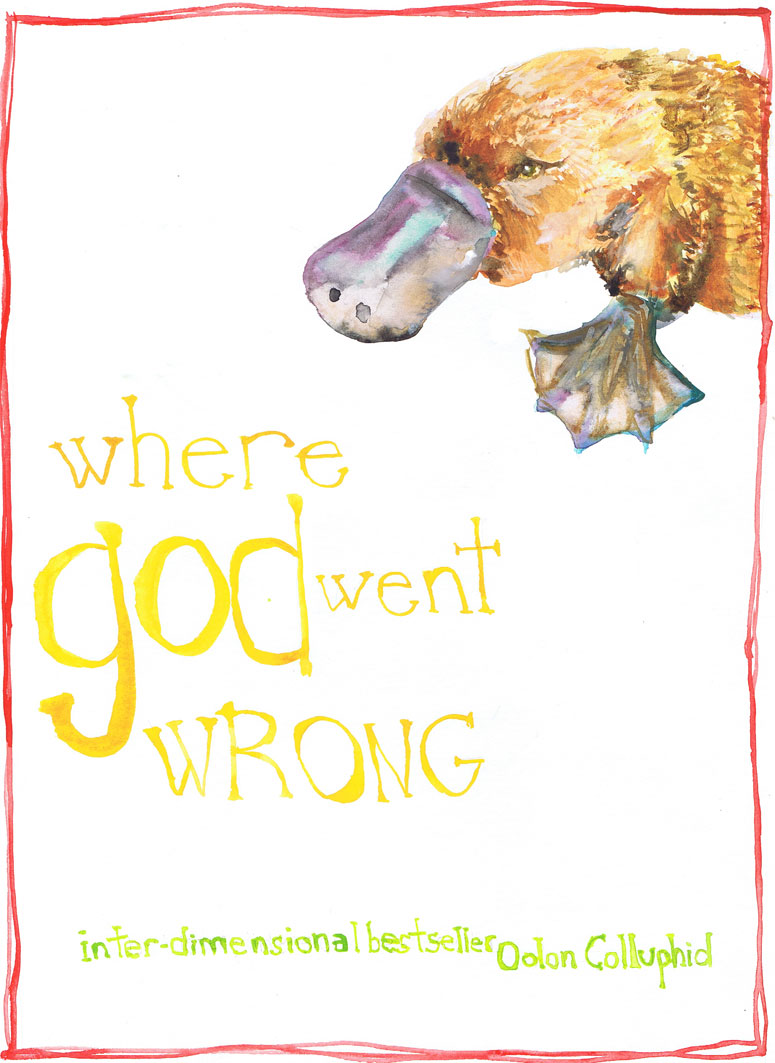 where
god went
WRONG
inter-dimensional bestseller Oolon Colluphid